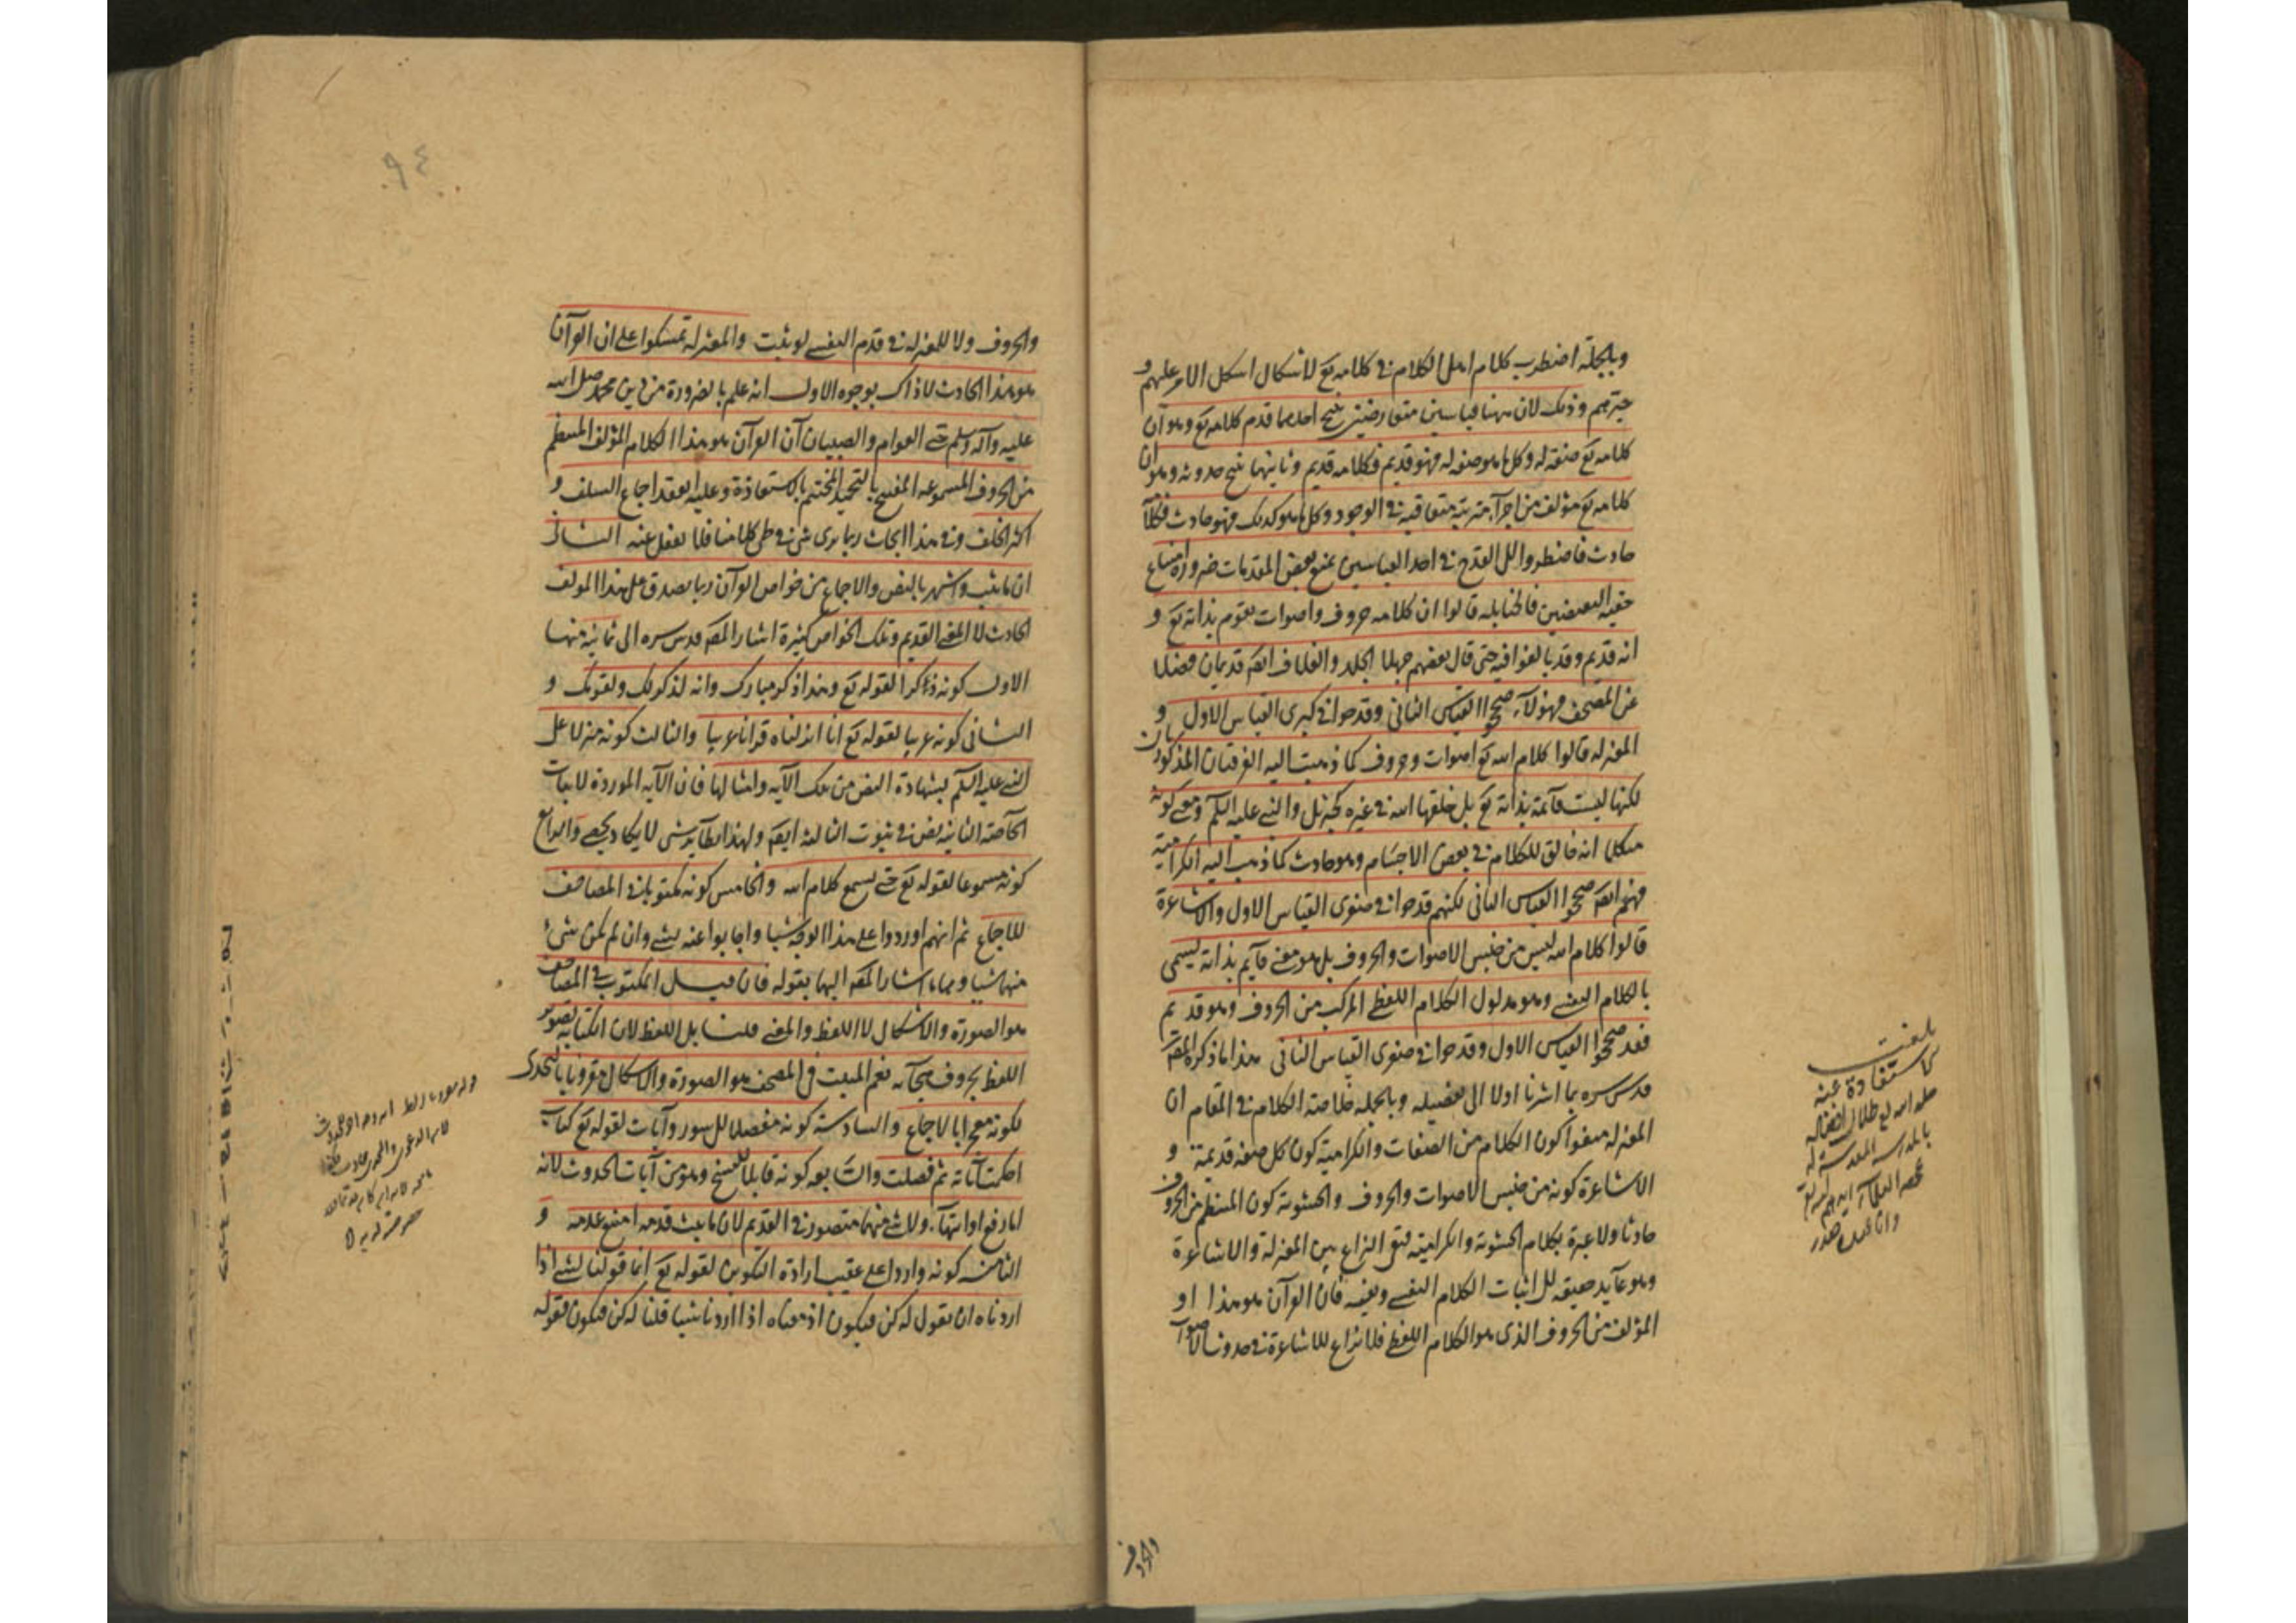 وبالجملة اضطرب كلام اهل الكلام في كلامه تع لاشكال اشكل الامر عليهم و
حيرتهم وذلك لان ههنا قياسين متعارضين ينتج احدهما قدم كلامه تع وهو ان
كلامه تع صفة له وكل ما هو صفة له فهو قديم فكلامه قديم وثانيهما ينتج حدوثه وهو ان
كلامه تع مؤلف من اجزآء مترتبة متعاقبة في الوجود وكل ما هو كذلك فهو حادث فكلامه
حادث فاضطروا الى القدح في احد القياسين بمنع بعض المقدمات ضرورة امتناع
حقية النقيضين فالحنابلة قالوا ان كلامه حروف واصوات يقوم بذاته تع و
انه قديم وقد بالغوا فيه حتى قال بعضهم جهلا الجلد والغلاف ايضا قديمان فضلا
عن المصحف فهؤلآء صححوا القياس الثاني وقدحوا في كبرى القياس الاول و
المعتزلة قالوا كلام الله تع اصوات وحروف كما ذهبت اليه الفرقتان المذكورتان
لكنها ليست قآئمة بذاته تع بل خلقها الله في غيره كجبرئيل والنبي عليه السلم ومعنى كونه
متكلما انه خالق للكلام في بعض الاجسام وهو حادث كما ذهب اليه الكرامية
فهم ايضا صححوا القياس الثاني لكنهم قدحوا في صغرى القياس الاول والاشاعرة
قالوا كلام الله ليس من جنس الاصوات والحروف بل هو معنى قآيم بذاته يسمى
بالكلام النفسي وهو مدلول الكلام اللفظي المركب من الحروف وهو قديم
فقد صححوا القياس الاول وقدحوا في صغرى القياس الثاني هذا ما ذكره المصه
قدس سره بما اشرنا اولا الى تفصيله وبالجملة خلاصة الكلام في المقام ان
المعتزلة منعوا كون الكلام من الصفات والكرامية كون كل صفة قديمة و
الاشاعرة كونه من جنس الاصوات والحروف والحشوية كون المنتظم من الحروف
حادثا ولا عبرة بكلام الحشوية والكرامية فبقى النزاع بين المعتزلة والاشاعرة
وهو عآيد حقيقة الى اثبات الكلام النفسي ونفيه فان القرآن هو هذا او
المؤلف من الحروف الذى هو الكلام اللفظي فلا نزاع للاشاعرة في حدوث الاصوات
بلغت
الاستفادة عنه
والحروف
٩٤
والحروف ولا للمعتزلة في قدم النفسي لو ثبت والمعتزلة تمسكوا على ان القرآن
هو هذا الحادث لا ذاك بوجوه الاول انه علم بالضرورة من دين محمد صلى الله
عليه وآله وسلم حتى العوام والصبيان آن القرآن هو هذا الكلام المؤلف المنتظم
من الحروف المسموعة المفتتح بالتحميد المختتم بالاستعاذة وعليه انعقد اجماع السلف و
اكثر الخلف وفي هذا ابحاث ربما يرى شئ في طى كلامنا فلا تغفل عنه الثاني
ان ما ثبت واشتهر بالنص والاجماع من خواص القرآن ربما يصدق على هذا المؤلف
الحادث لا المعنى القديم وتلك الخواص كثيرة اشار المصه قدس سره الى ثمانية منها
الاول كونه ذكرا لقوله تع وهذا ذكر مبارك وانه لذكر لك ولقومك و
الثاني كونه عربيا لقوله تع انا انزلناه قرانا عربيا والثالث كونه منزلا على
النبي عليه السلم بشهادة النص من تلك الآية وامثالها فان الآية الموردة لاثبات
الخآصة الثانية نص في ثبوت الثالثة ايضا ولهذا نظآير شتى لا يكاد يحصى والرابع
كونه مسموعا لقوله تع حتى يسمع كلام الله والخامس كونه مكتوبا في المصاحف
للاجماع ثم انهم اوردوا على هذا الوجه شيئا واجابوا عنه بشئ وان لم يكن شئ
منها شيئا وهما ما اشار المصه اليها بقوله فان قيل المكتوب في المصاحف
هو الصورة والاشكال لا اللفظ والمعنى قلنا بل اللفظ لان الكتابة تصوير
اللفظ بحروف هجآئه نعم المثبت في المصحف هو الصورة والاشكال مقرونا بالتحدى
لكونه معجزا بالاجماع والسادسة كونه مفصلا الى سور وآيات لقوله تع كتاب
احكمت آياته ثم فصلت والسآبعة كونه قابلا للنسخ وهو من آيات الحدوث لانه
اما رفع او انتهآء ولا شئ منهما متصور في القديم لان ما يثبت قدمه امتنع عدمه و
الثامنة كونه واردا على عقيب ارادة التكوين لقوله تع انما قولنا لشئ اذا
اردناه ان نقول له كن فيكون اذ معناه اذا اردنا شيئا قلنا له كن فيكون فقوله